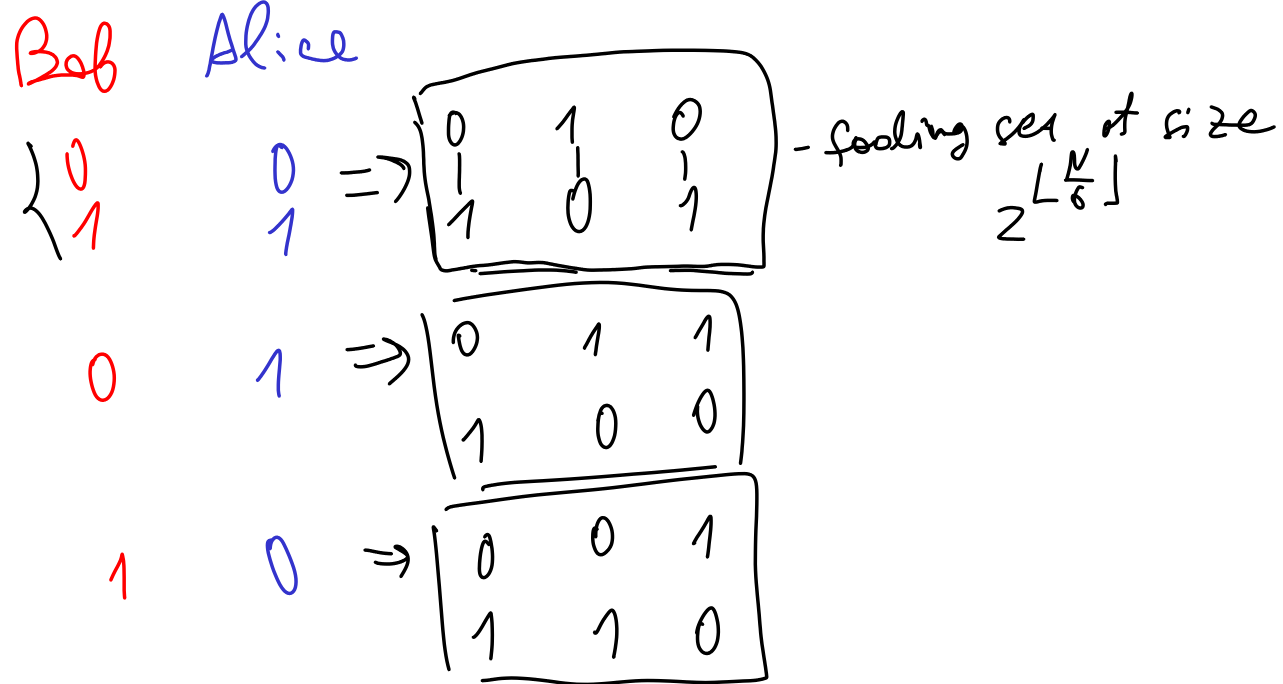 Bob Alice
0 0 ⇒ 0 1 0 - fooling set of size
1 1 1 0 1 2^⌊N/6⌋
0 1 ⇒ 0 1 1
1 0 0
1 0 ⇒ 0 0 1
1 1 0